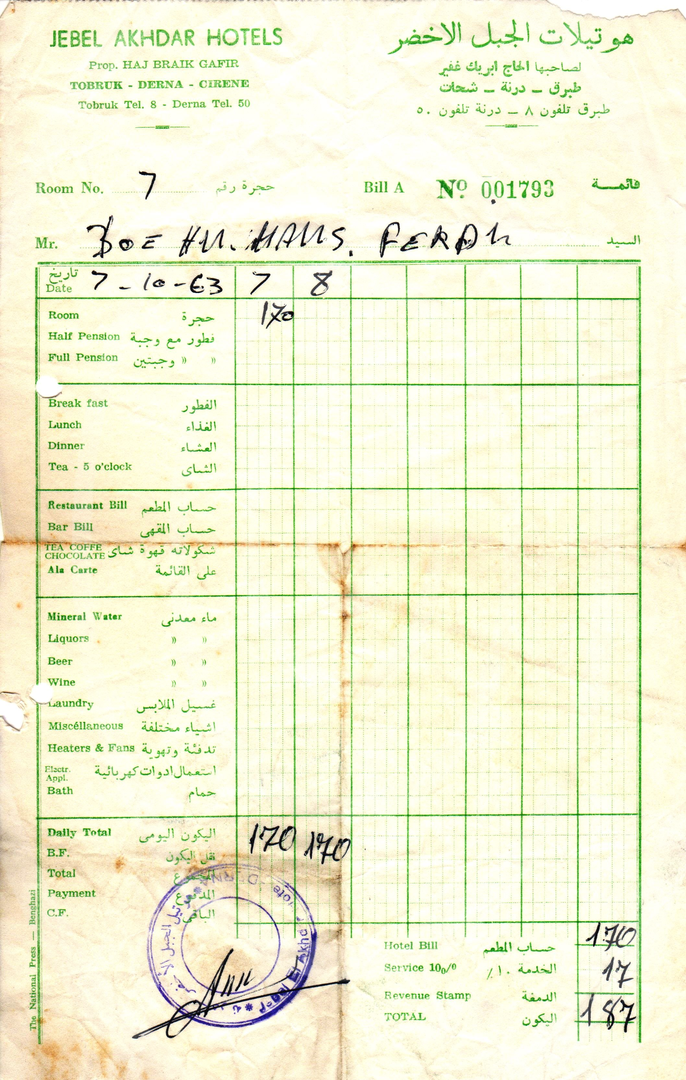 JEBEL AKHDAR HOTELS
Prop. HAJ BRAIK GAFIR
TOBRUK - DERNA - CIRENE
Tobruk Tel. 8 - Derna Tel. 50
هوتيلات الجبل الاخضر
لصاحبها الحاج ابريك غفير
طبرق - درنة - شحات
طبرق تلفون ٨ - درنة تلفون ٥٠
Room No. 7 حجرة رقم
Bill A Nº 001793 قائمة
Mr. السيد
Date تاريخ 7-10-63 7 8
Room حجرة 170
Half Pension فطور مع وجبة
Full Pension » وجبتين »
Break fast الفطور
Lunch الغذاء
Dinner العشاء
Tea - 5 o'clock الشاى
Restaurant Bill حساب المطعم
Bar Bill حساب المقهى
TEA COFFE CHOCOLATE شكولاته قهوة شاى
Ala Carte على القائمة
Mineral Water ماء معدنى
Liquors » »
Beer » »
Wine » »
Laundry غسيل الملابس
Miscéllaneous اشياء مختلفة
Heaters & Fans تدفئة وتهوية
Electr. Appl. استعمال ادوات كهربائية
Bath حمام
Daily Total اليكون اليومى 170 170
B.F. نقل اليكون
Total المجموع
Payment المدفوع
C.F. الباقى
Hotel Bill حساب المطعم 170
Service 10% الخدمة ١٠٪ 17
Revenue Stamp الدمغة
TOTAL اليكون 187
The National Press — Benghazi